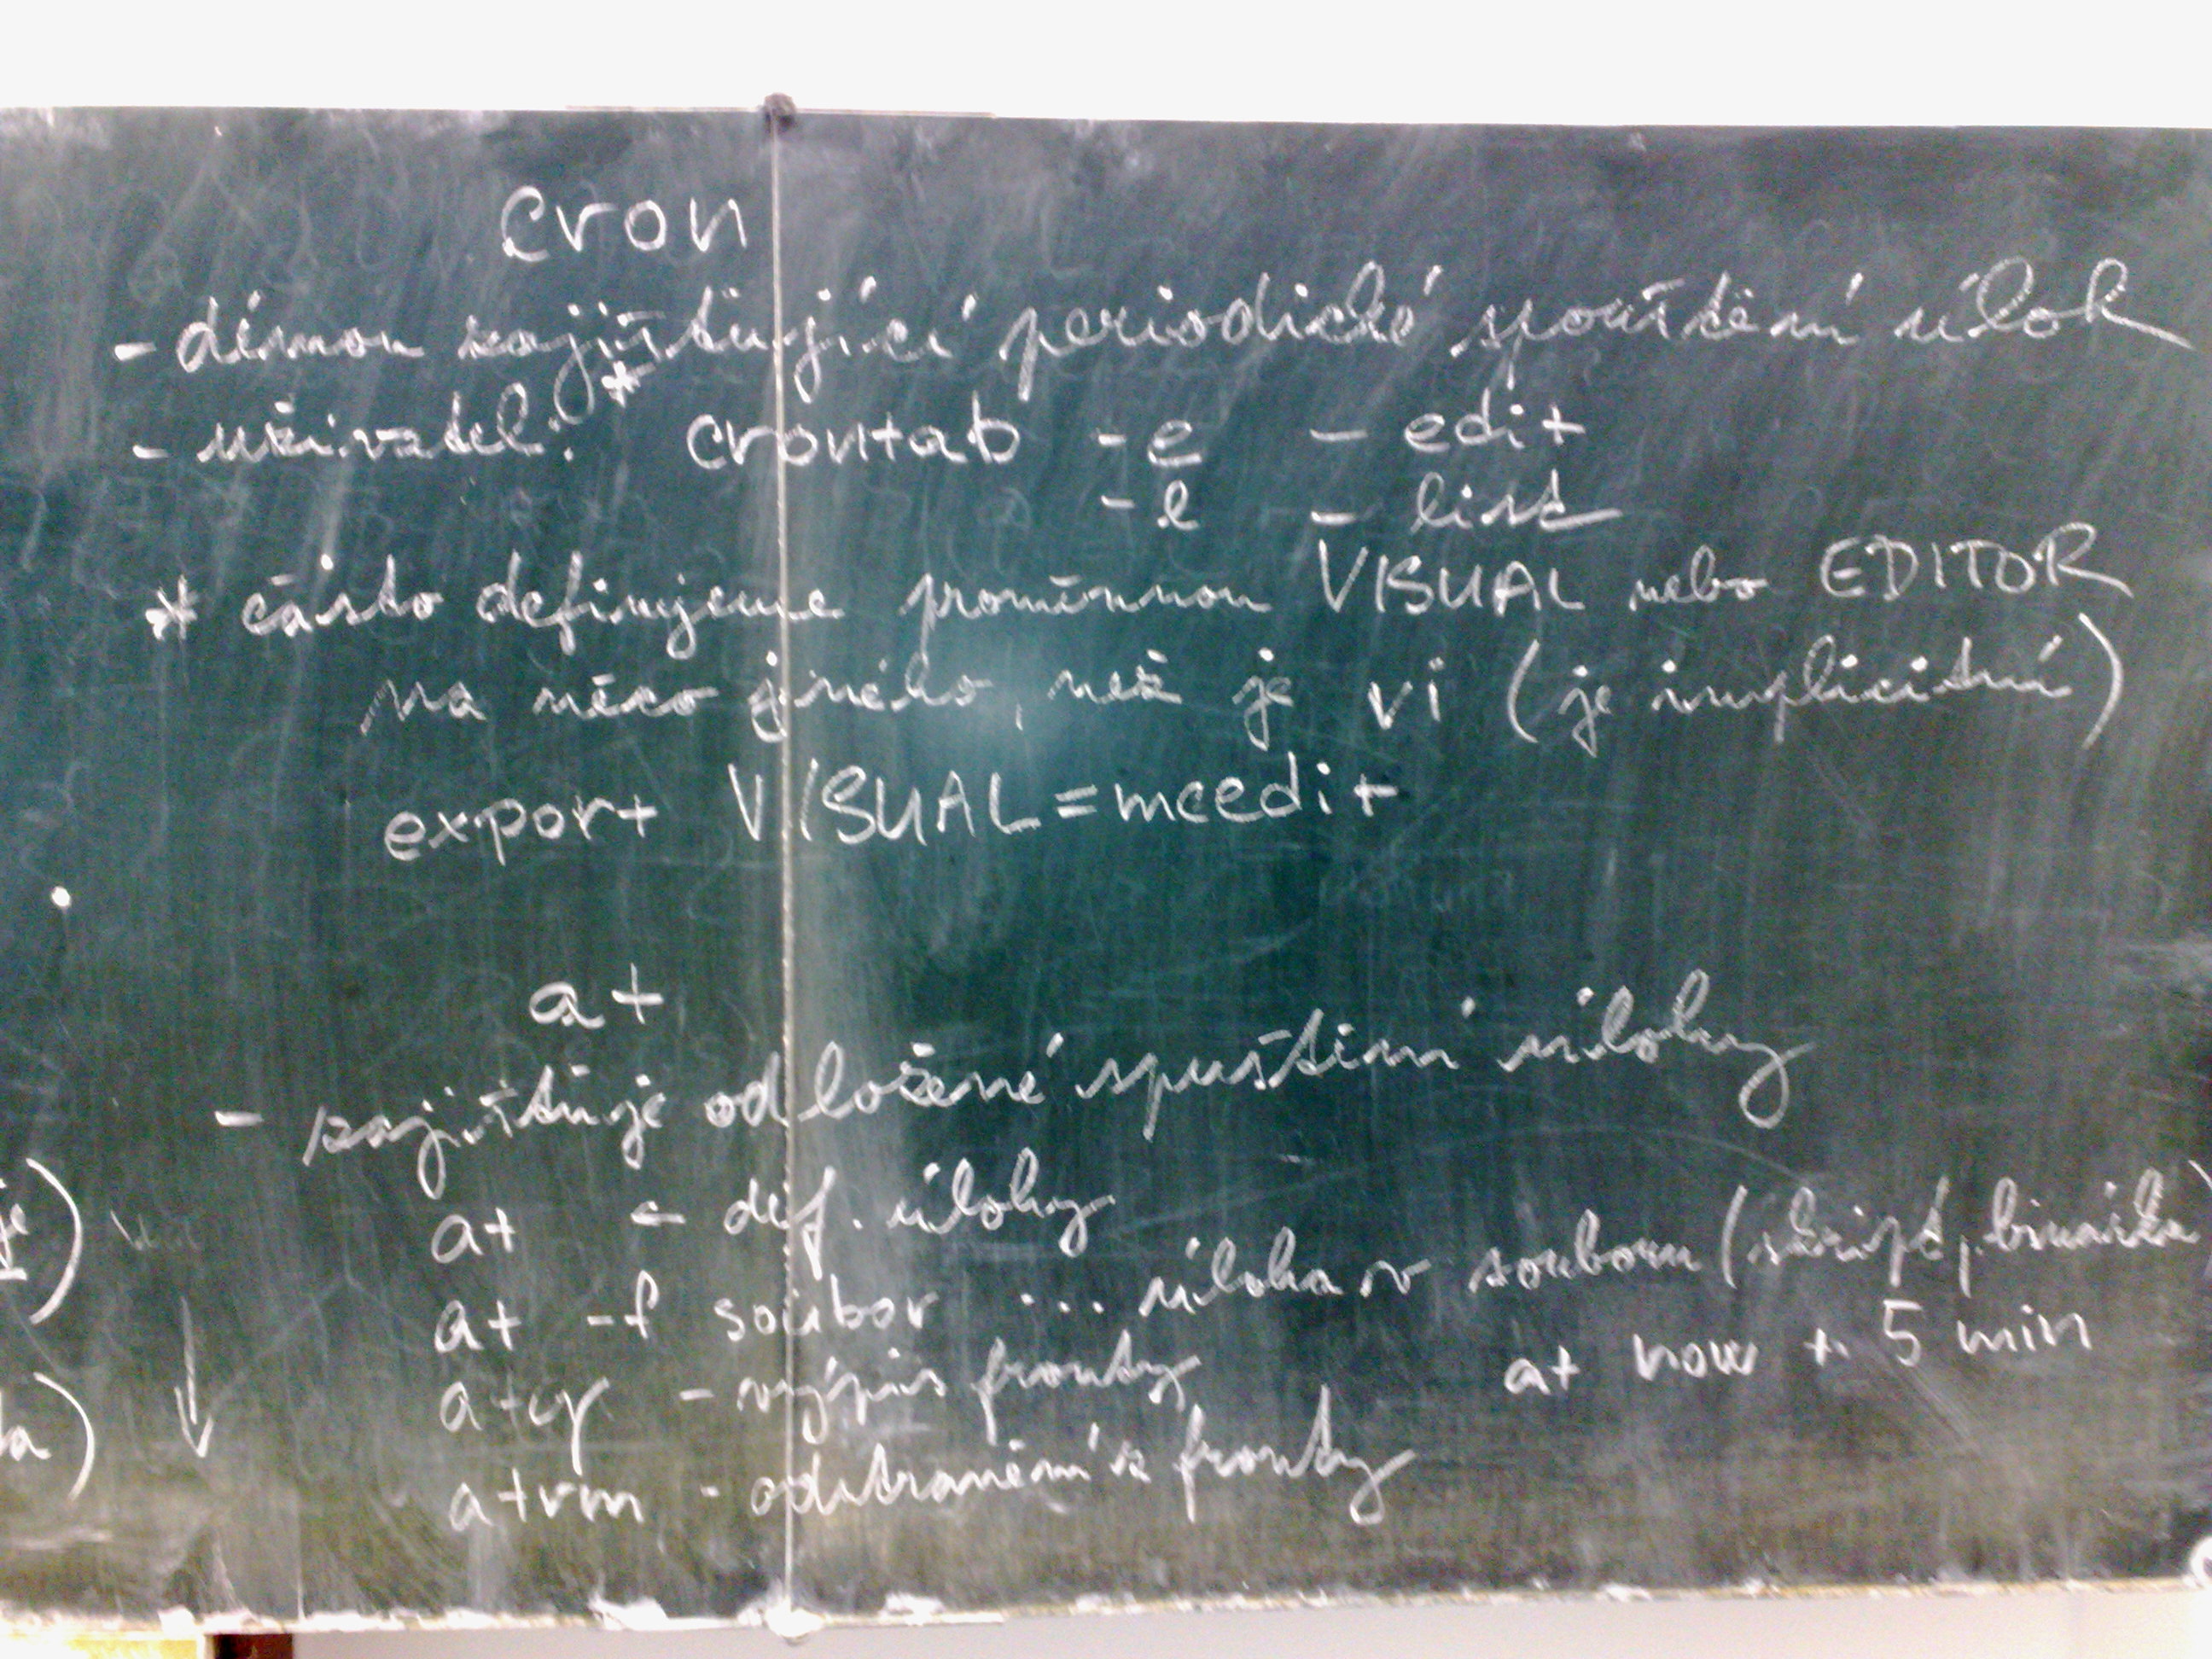 cron
- démon zajišťující periodické spouštění úloh
- uživatel:* crontab -e - edit
-l - list
* často definujeme proměnnou VISUAL nebo EDITOR
na něco jiného, než je vi (je implicitní)
export VISUAL=mcedit
at
- zajišťuje odložené spuštění úlohy
at ← def. úlohy
at -f soubor ... úloha v souboru (skript, binárka)
atq - výpis fronty
at now + 5 min
atrm - odstranění z fronty